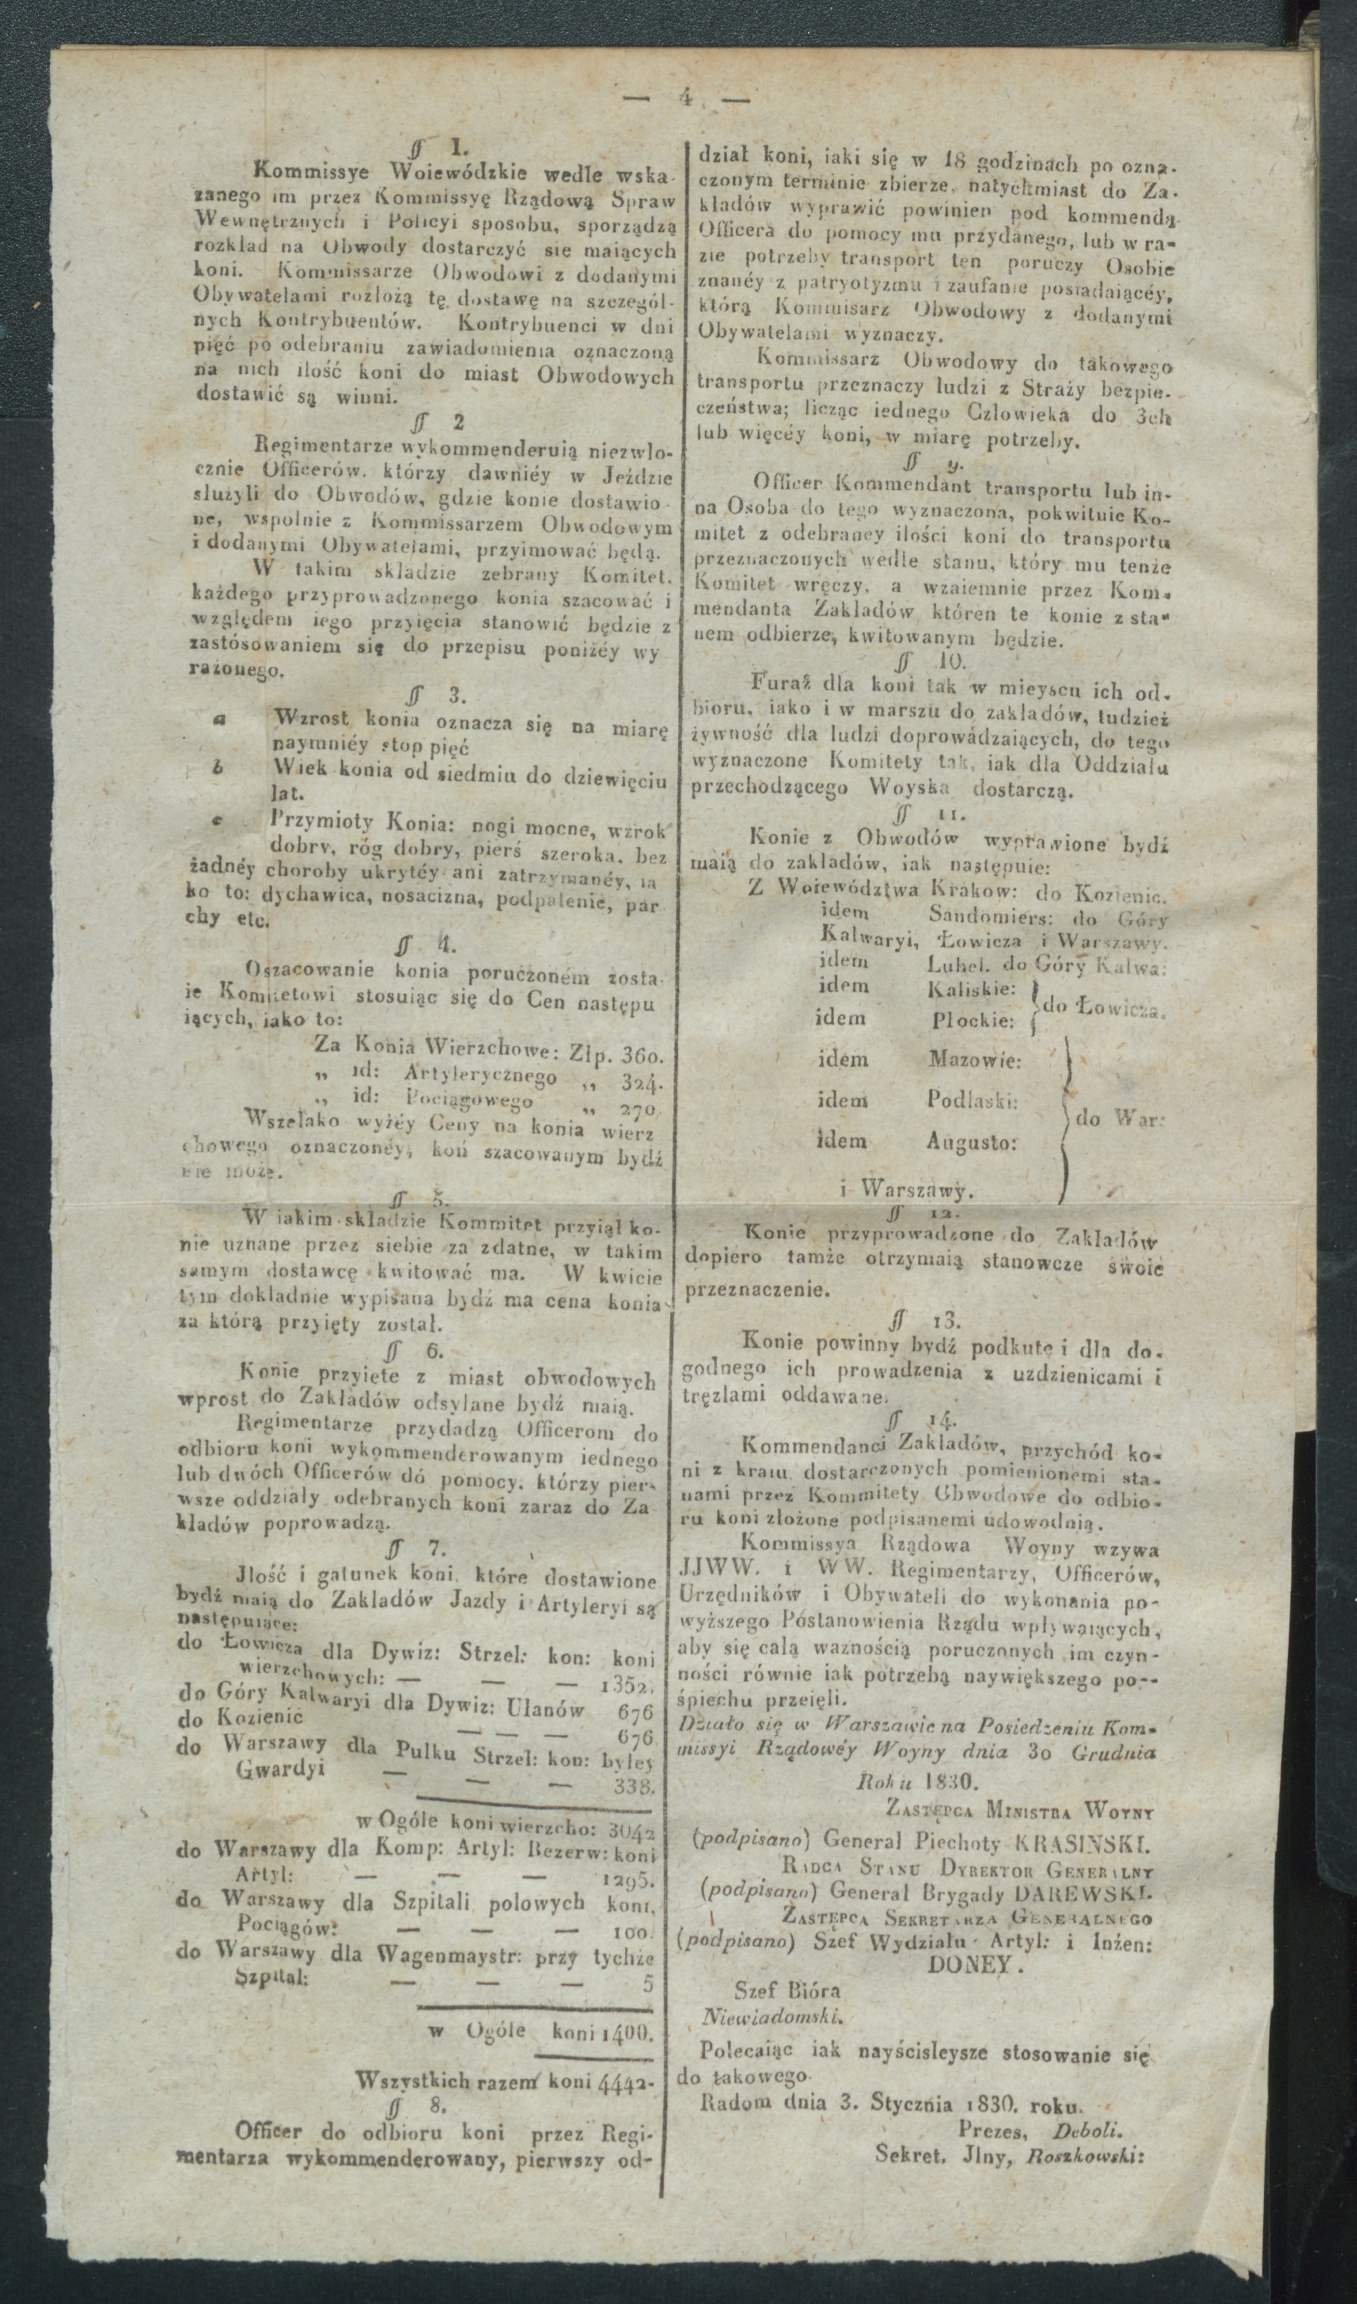 — 4 —
§ 1.
Kommissye Woiewódzkie wedle wska-
zanego im przez Kommissyę Rządową Spraw
Wewnętrznych i Policyi sposobu, sporządzą
rozkład na Obwody dostarczyć sie maiących
koni. Kommissarze Obwodowi z dodanymi
Obywatelami rozłożą tę dostawę na szczegól-
nych Kontrybuentów. Kontrybuenci w dni
pięć po odebraniu zawiadomienia oznaczoną
na nich ilość koni do miast Obwodowych
dostawić są winni.
§ 2
Regimentarze wykommenderuią niezwło-
cznie Officerów, którzy dawniéy w Jeździe
służyli do Obwodów, gdzie konie dostawio-
ne, wspolnie z Kommissarzem Obwodowym
i dodanymi Obywatelami, przyimować będą.
W takim składzie zebrany Komitet,
każdego przyprowadzonego konia szacować i
względem iego przyięcia stanowić będzie z
zastósowaniem się do przepisu poniżéy wy
rażonego.
§ 3.
a Wzrost konia oznacza się na miarę
naymniéy stop pięć
b Wiek konia od siedmiu do dziewięciu
lat.
c Przymioty Konia: nogi mocne, wzrok
dobry, róg dobry, pierś szeroka, bez
żadnéy choroby ukrytéy ani zatrzymanéy, ia
ko to: dychawica, nosacizna, podpalenie, par
chy etc.
§ 4.
Oszacowanie konia poruczoném zosta-
ie Komitetowi stosuiąc się do Cen następu
iących, iako to:
Za Konia Wierzchowe: Złp. 360.
„ id: Artylerycznego „ 324.
„ id: Pociągowego „ 270.
Wszelako wyżéy Ceny na konia wierz
chowego oznaczonéy, koń szacowanym bydź
nie może.
§ 5.
W iakim składzie Kommitet przyiął ko-
nie uznane przez siebie za zdatne, w takim
samym dostawcę kwitować ma. W kwicie
tym dokładnie wypisana bydź ma cena konia
za którą przyięty został.
§ 6.
Konie przyiete z miast obwodowych
wprost do Zakładów odsyłane bydź maią.
Regimentarze przydadzą Officerom do
odbioru koni wykommenderowanym iednego
lub dwóch Officerów dó pomocy, którzy pier-
wsze oddziały odebranych koni zaraz do Za
kładów poprowadzą.
§ 7.
Jlość i gatunek koni, które dostawione
bydź maią do Zakładów Jazdy i Artyleryi są
następuiące:
do Łowicza dla Dywiz: Strzel: kon: koni
wierzchowych: — — — 1352.
do Góry Kalwaryi dla Dywiz: Ułanów 676
do Kozienic — — — 676
do Warszawy dla Pułku Strzel: kon: byłey
Gwardyi — — — 338.
w Ogóle koni wierzcho: 3042
do Warszawy dla Komp: Artyl: Rezerw: koni
Artyl: — — — 1295.
do Warszawy dla Szpitali polowych koni,
Pociągów: — — — 100.
do Warszawy dla Wagenmaystr: przy tychże
Szpital: — — — 5
w Ogóle koni 1400.
Wszystkich razem koni 4442-
§ 8.
Officer do odbioru koni przez Regi-
mentarza wykommenderowany, pierwszy od-
dział koni, iaki się w 18 godzinach po ozna-
czonym terminie zbierze, natychmiast do Za-
kładów wyprawić powinien pod kommendą
Officera do pomocy mu przydanego, lub w ra-
zie potrzeby transport ten poruczy Osobie
znanéy z patryotyzmu i zaufanie posiadaiącéy,
którą Kommisarz Obwodowy z dodanymi
Obywatelami wyznaczy.
Kommissarz Obwodowy do takowego
transportu przeznaczy ludzi z Straży bezpie-
czeństwa; licząc iednego Człowieka do 3ch
lub więcéy koni, w miarę potrzeby.
§ 9.
Officer Kommendant transportu lub in-
na Osoba do tego wyznaczona, pokwituie Ko-
mitet z odebraney ilości koni do transportu
przeznaczonych wedle stanu, który mu tenże
Komitet wręczy, a wzaiemnie przez Kom-
mendanta Zakładów któren te konie z sta-
nem odbierze, kwitowanym będzie.
§ 10.
Furaż dla koni tak w mieyscu ich od-
bioru, iako i w marszu do zakładów, tudzież
żywność dla ludzi doprowádzaiących, do tego
wyznaczone Komitety tak, iak dla Oddziału
przechodzącego Woyska dostarczą.
§ 11.
Konie z Obwodów wyprawione bydź
maią do zakładów, iak następuie:
Z Woiewództwa Krakow: do Kozienic.
idem Sandomiers: do Góry
Kalwaryi, Łowicza i Warszawy.
idem Lubel. do Góry Kalwa:
idem Kaliskie:
idem Płockie: } do Łowicza.
idem Mazowie:
idem Podlaski:
} do War:
idem Augusto:
i Warszawy.
§ 12.
Konie przyprowadzone do Zakładów
dopiero tamże otrzymaią stanowcze swoie
przeznaczenie.
§ 13.
Konie powinny bydź podkute i dla do-
godnego ich prowadzenia z uzdzienicami i
tręzlami oddawane.
§ 14.
Kommendanci Zakładów, przychód ko-
ni z kraiu dostarczonych pomienionemi sta-
nami przez Kommitety Obwodowe do odbio-
ru koni złożone podpisanemi udowodnią.
Kommissya Rządowa Woyny wzywa
JJWW. i WW. Regimentarzy, Officerów,
Urzędników i Obywateli do wykonania po-
wyższego Postanowienia Rządu wpływaiących,
aby się całą ważnością poruczonych im czyn-
ności równie iak potrzebą naywiększego po--
śpiechu przeięli.
Działo się w Warszawie na Posiedzeniu Kom-
missyi Rządowéy Woyny dnia 30 Grudnia
Roku 1830.
ZASTĘPCA MINISTRA WOYNY
(podpisano) Generał Piechoty KRASINSKI.
RADCA STANU DYREKTOR GENERALNY
(podpisano) Generał Brygady DAREWSKI.
ZASTĘPCA SEKRETARZA GENERALNEGO
(podpisano) Szef Wydziału Artyl: i Inżen:
DONEY.
Szef Bióra
Niewiadomski.
Polecaiąc iak nayścisleysze stosowanie się
do takowego.
Radom dnia 3. Stycznia 1830. roku.
Prezes, Deboli.
Sekret. Jlny, Roszkowski: